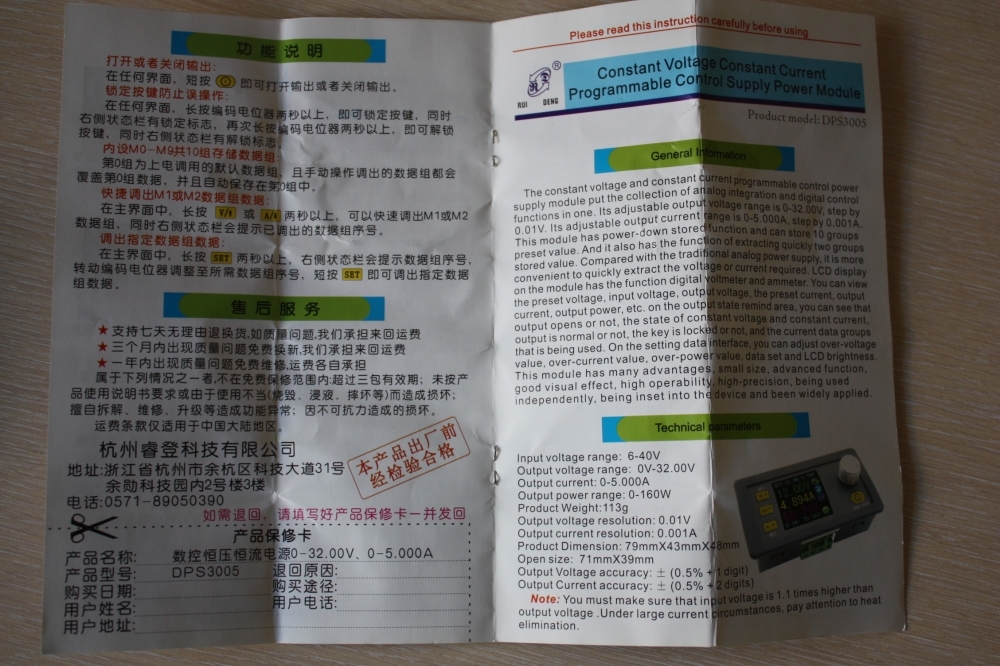 功能说明
打开或者关闭输出:
在任何界面，短按 即可打开输出或者关闭输出。
锁定按键防止误操作:
在任何界面，长按编码电位器两秒以上，即可锁定按键，同时
右侧状态栏有锁定标志，再次长按编码电位器两秒以上，即可解锁
按键，同时右侧状态栏有解锁标志。
内设M0-M9共10组存储数据组:
第0组为上电调用的默认数据组，且手动操作调出的数据组都会
覆盖第0组数据，并且自动保存在第0组中。
快捷调出M1或M2数据组数据:
在主界面中，长按 V/⬍ 或 A/⬍ 两秒以上，可以快速调出M1或M2
数据组，同时右侧状态栏会提示已调出的数据组序号。
调出指定数据组数据:
在主界面中，长按 SET 两秒以上，右侧状态栏会提示数据组序号，
转动编码电位器调整至所需数据组序号，短按 SET 即可调出指定数据
组数据。
售后服务
★支持七天无理由退换货,如质量问题,我们承担来回运费
★三个月内出现质量问题免费换新,我们承担来回运费
★一年内出现质量问题免费维修,运费各自承担
属于下列情况之一者,不在免费保修范围内:超过三包有效期；未按产
品使用说明书要求或由于使用不当(烧毁、浸液、摔坏等)而造成损坏；
擅自拆解、维修、升级等造成功能异常；因不可抗力造成的损坏。
运费条款仅适用于中国大陆地区。
杭州睿登科技有限公司
地址:浙江省杭州市余杭区科技大道31号
余勋科技园内2号楼3楼
电话:0571-89050390
本产品出厂前
经检验合格
如需退回，请填写好产品保修卡一并发回
产品保修卡
产品名称: 数控恒压恒流电源0-32.00V、0-5.000A
产品型号: DPS3005 退回原因:
购买日期: 购买途径:
用户姓名: 用户电话:
用户地址:
Please read this instruction carefully before using
RUI DENG
®
Constant Voltage Constant Current
Programmable Control Supply Power Module
Product model: DPS3005
General Information
The constant voltage and constant current programmable control power
supply module put the collection of analog integration and digital control
functions in one. Its adjustable output voltage range is 0-32.00V, step by
0.01V. Its adjustable output current range is 0-5.000A, step by 0.001A.
This module has power-down stored function and can store 10 groups
preset value. And it also has the function of extracting quickly two groups
stored value. Compared with the traditional analog power supply, it is more
convenient to quickly extract the voltage or current required. LCD display
on the module has the function digital voltmeter and ammeter. You can view
the preset voltage, input voltage, output voltage, the preset current, output
current, output power, etc. on the output state remind area, you can see that
output opens or not, the state of constant voltage and constant current,
output is normal or not, the key is locked or not, and the current data groups
that is being used. On the setting data interface, you can adjust over-voltage
value, over-current value, over-power value, data set and LCD brightness.
This module has many advantages, small size, advanced function,
good visual effect, high operability, high-precision, being used
independently, being inset into the device and been widely applied.
Technical parameters
Input voltage range: 6-40V
Output voltage range: 0V-32.00V
Output current: 0-5.000A
Output power range: 0-160W
Product Weight:113g
Output voltage resolution: 0.01V
Output current resolution: 0.001A
Product Dimension: 79mmX43mmX48mm
Open size: 71mmX39mm
Output Voltage accuracy: ± (0.5% + 1 digit)
Output Current accuracy: ± (0.5% + 2 digits)
4.894A
Note: You must make sure that input voltage is 1.1 times higher than
output voltage .Under large current circumstances, pay attention to heat
elimination.